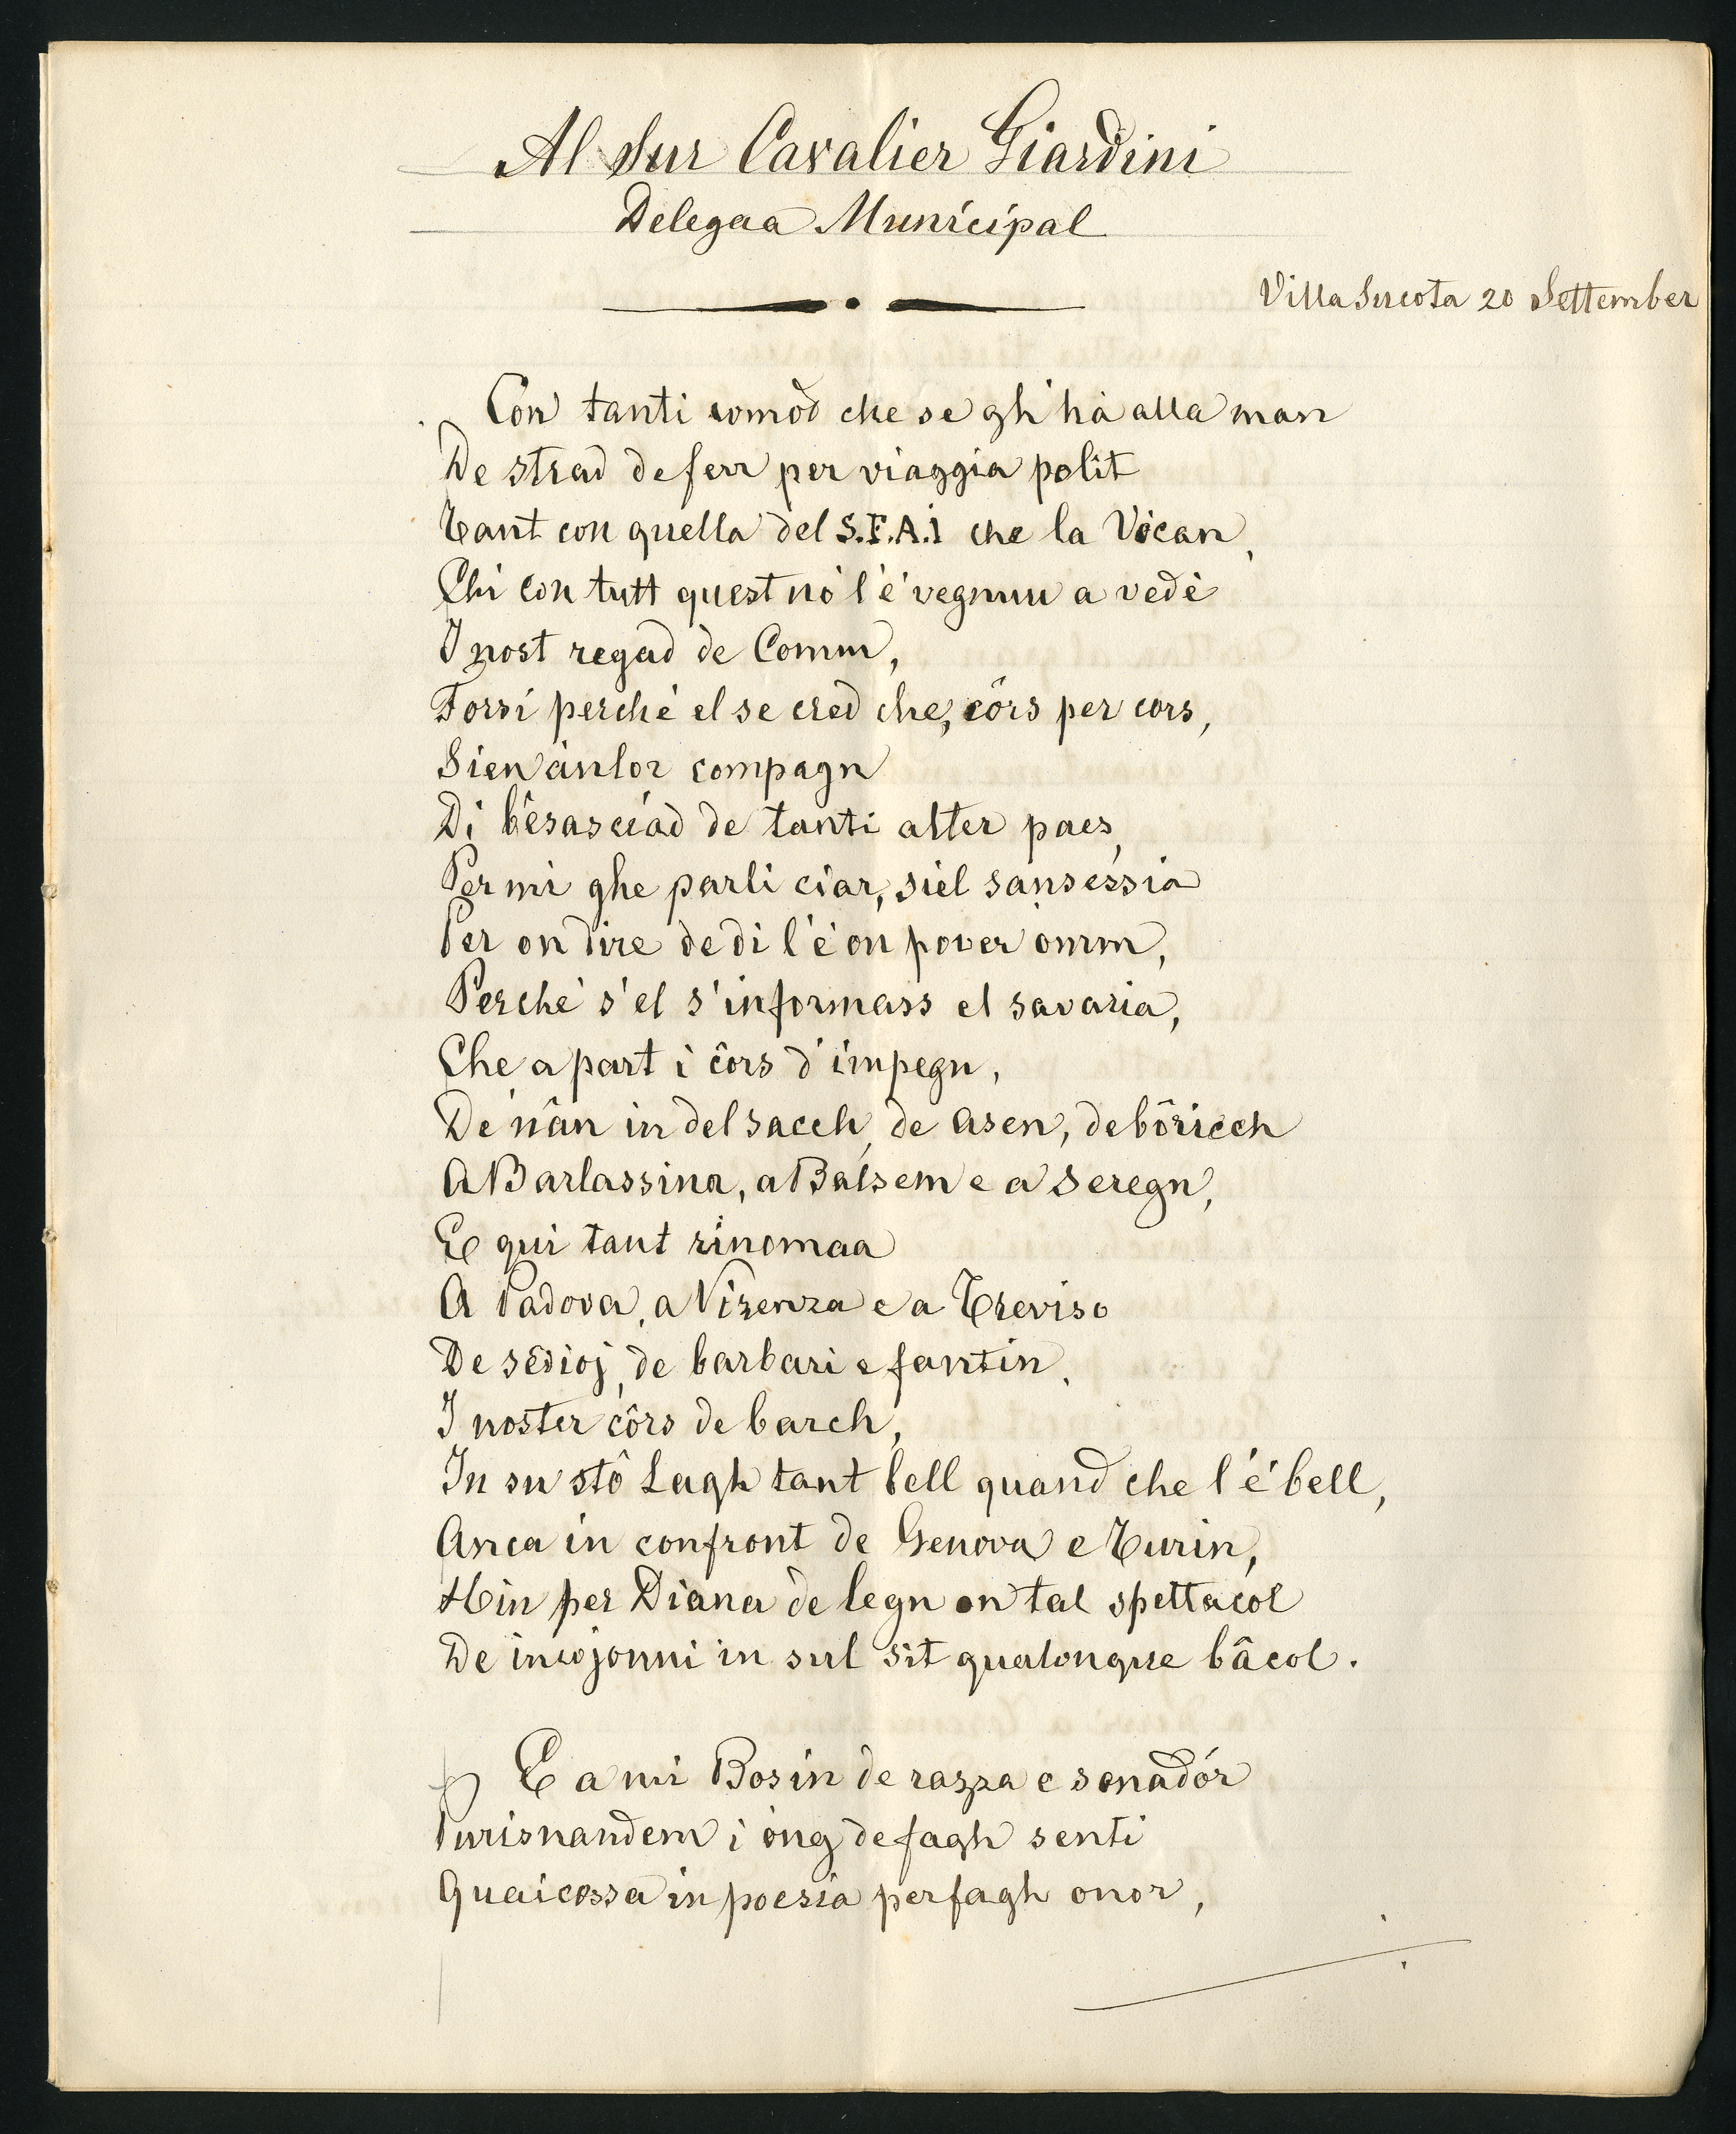 Al Sur Cavalier Giardini
Delegaa Municipal
Villa Sucota 20 Settember
Con tanti comod che se gh'hà alla man
De strad de ferr per viaggia polit
Tant con quella del S.F.A.I che la Vòcan,
Chi con tutt quest nò l'é vegnuu a vedè
I nost regad de Comm,
Forsi perché el se cred che, côrs per cors,
Sien anlor compagn
Di bêsasciad de tanti alter paes,
Per mi ghe parli ciar, si el sansessia
Per on dire de di l'é on pover omm,
Perché s'el s'informass el savaria,
Che a part i côrs d'impegn,
De nân in del sacch, de asen, de bôricch
A Barlassina, a Balsem e a Seregn,
E qui tant rinomaa
A Padova, a Vizenza e a Treviso
De sêdioj, de barbari e fantin,
I noster côrs de barch,
In su stô Lagh tant bell quand che l'é bell,
Anca in confront de Genova e Turin,
Hin per Diana de legn on tal spettacol
De incojonni in sul sit qualonque bâcol.
E a mi Bosin de razza e sonadór
Purisnandem i ong de fagh senti
Quaicossa in poesia per fagh onor,